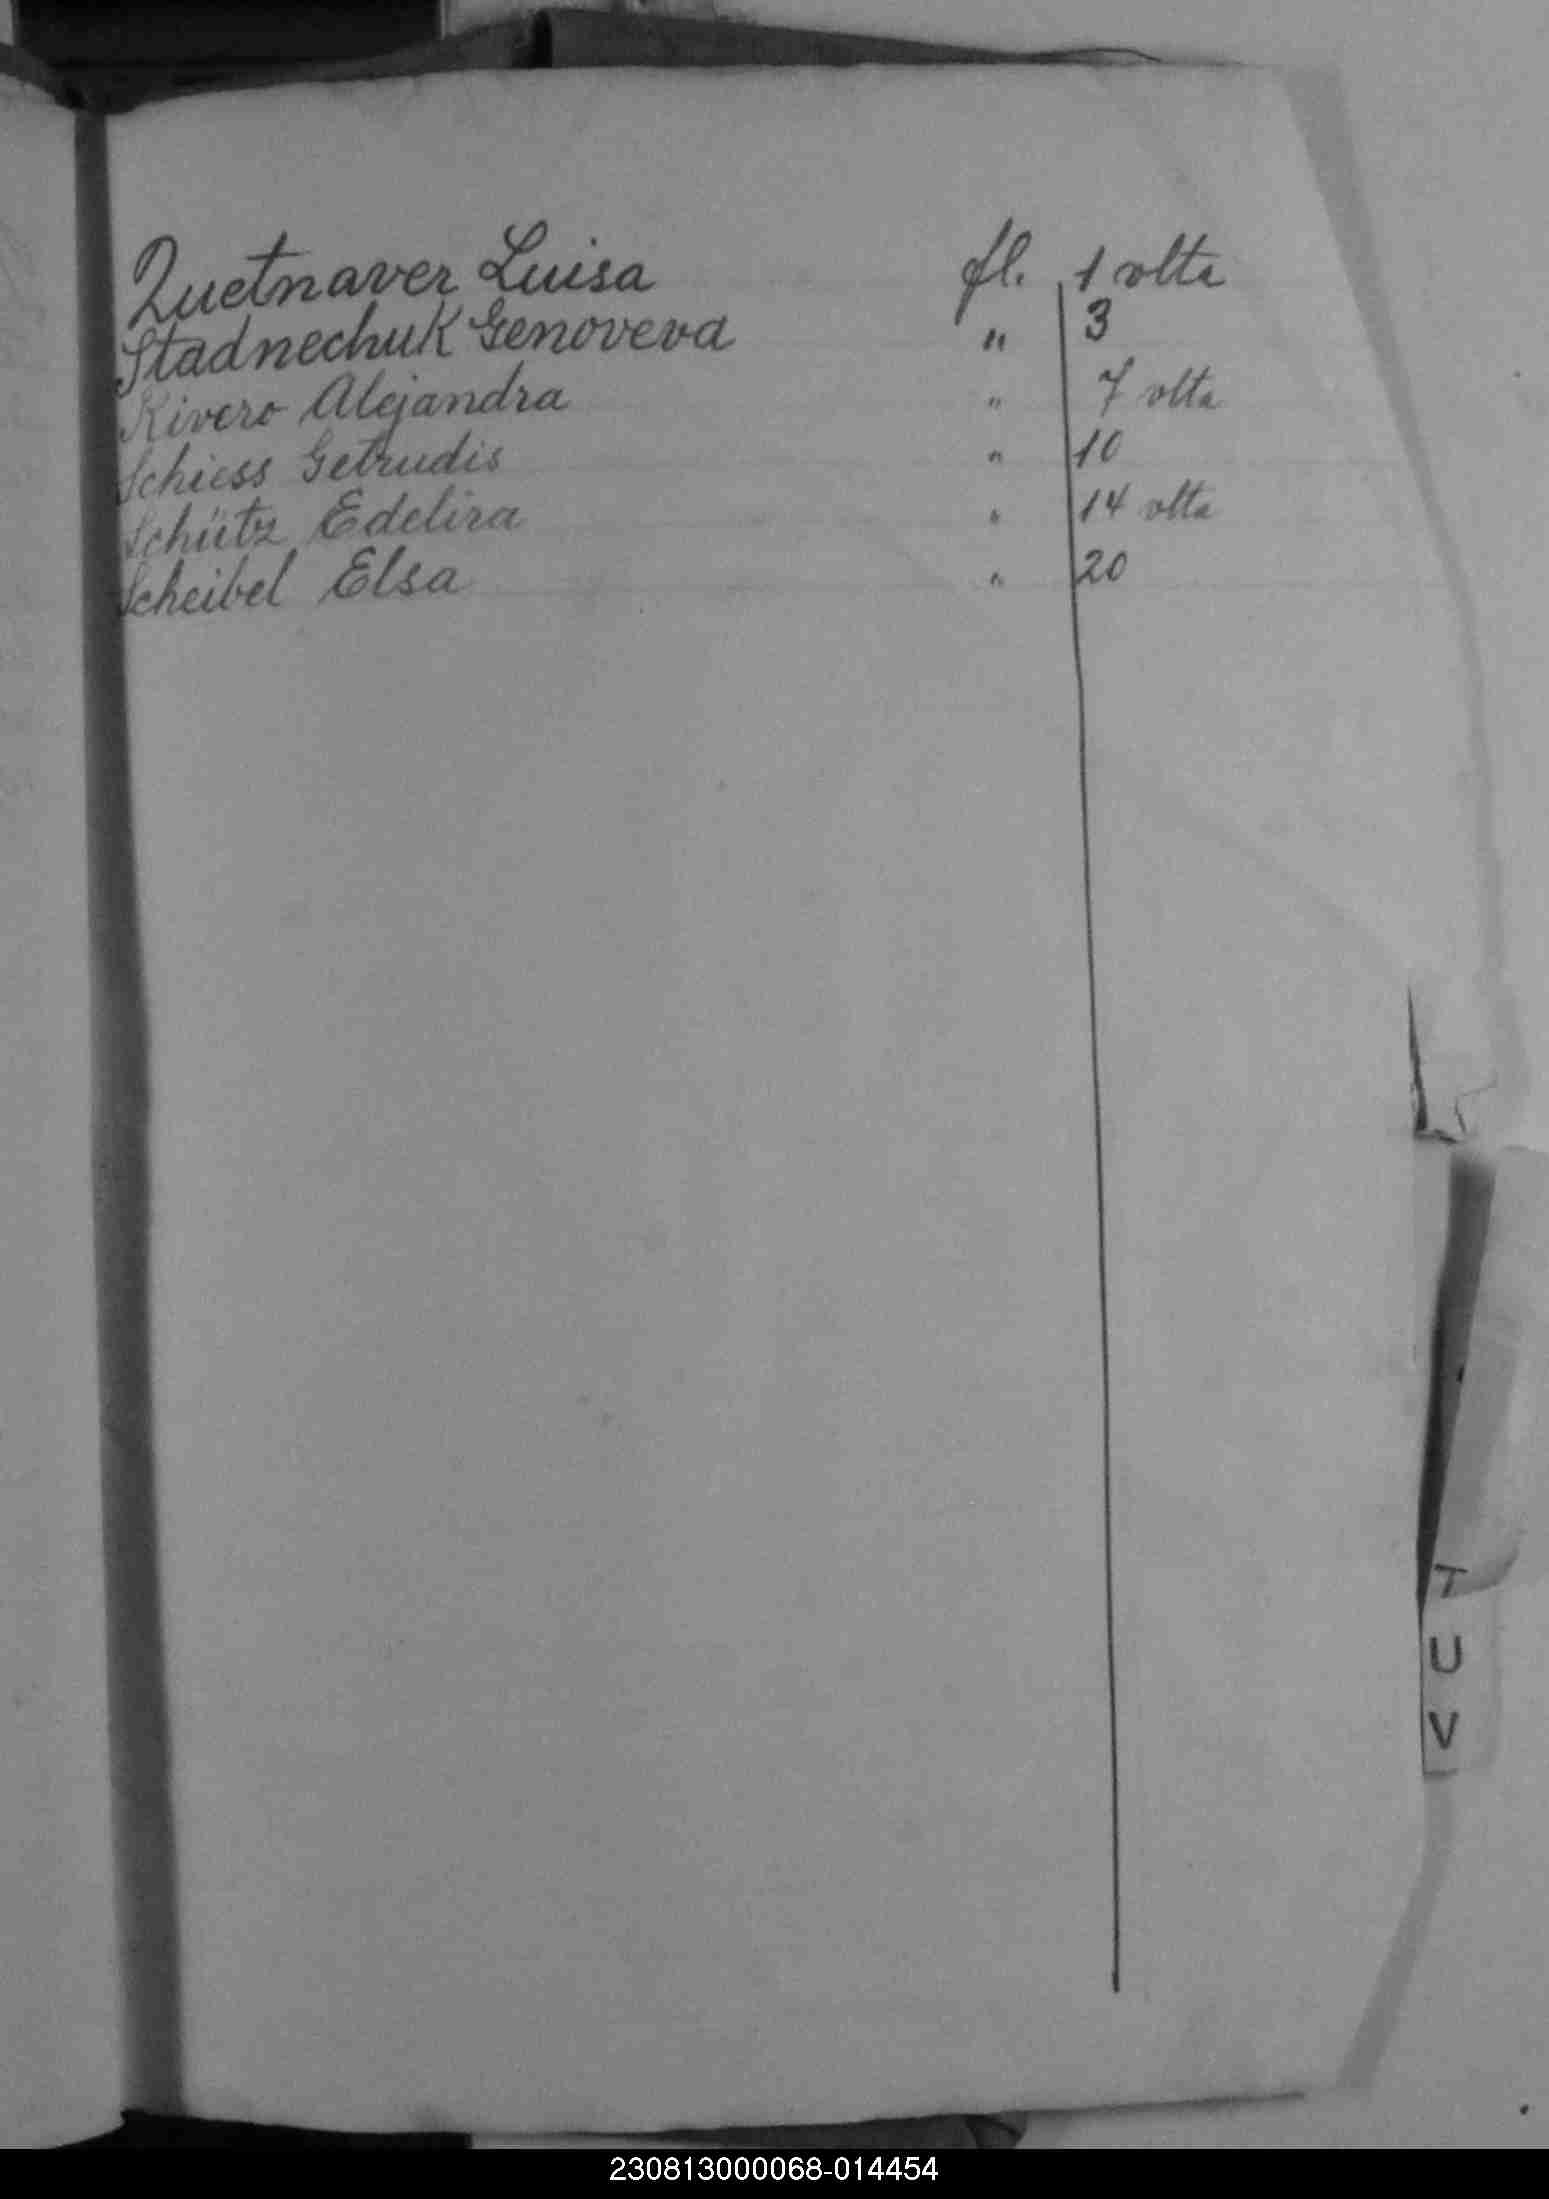 Quetnaver Luisa fl. 1 volta
Stadnechuk Genoveva " 3
Rivero Alejandra " 7 volta
Schiess Getrudis " 10
Schütz Edelira " 14 volta
Scheibel Elsa " 20
T
U
V
230813000068-014454